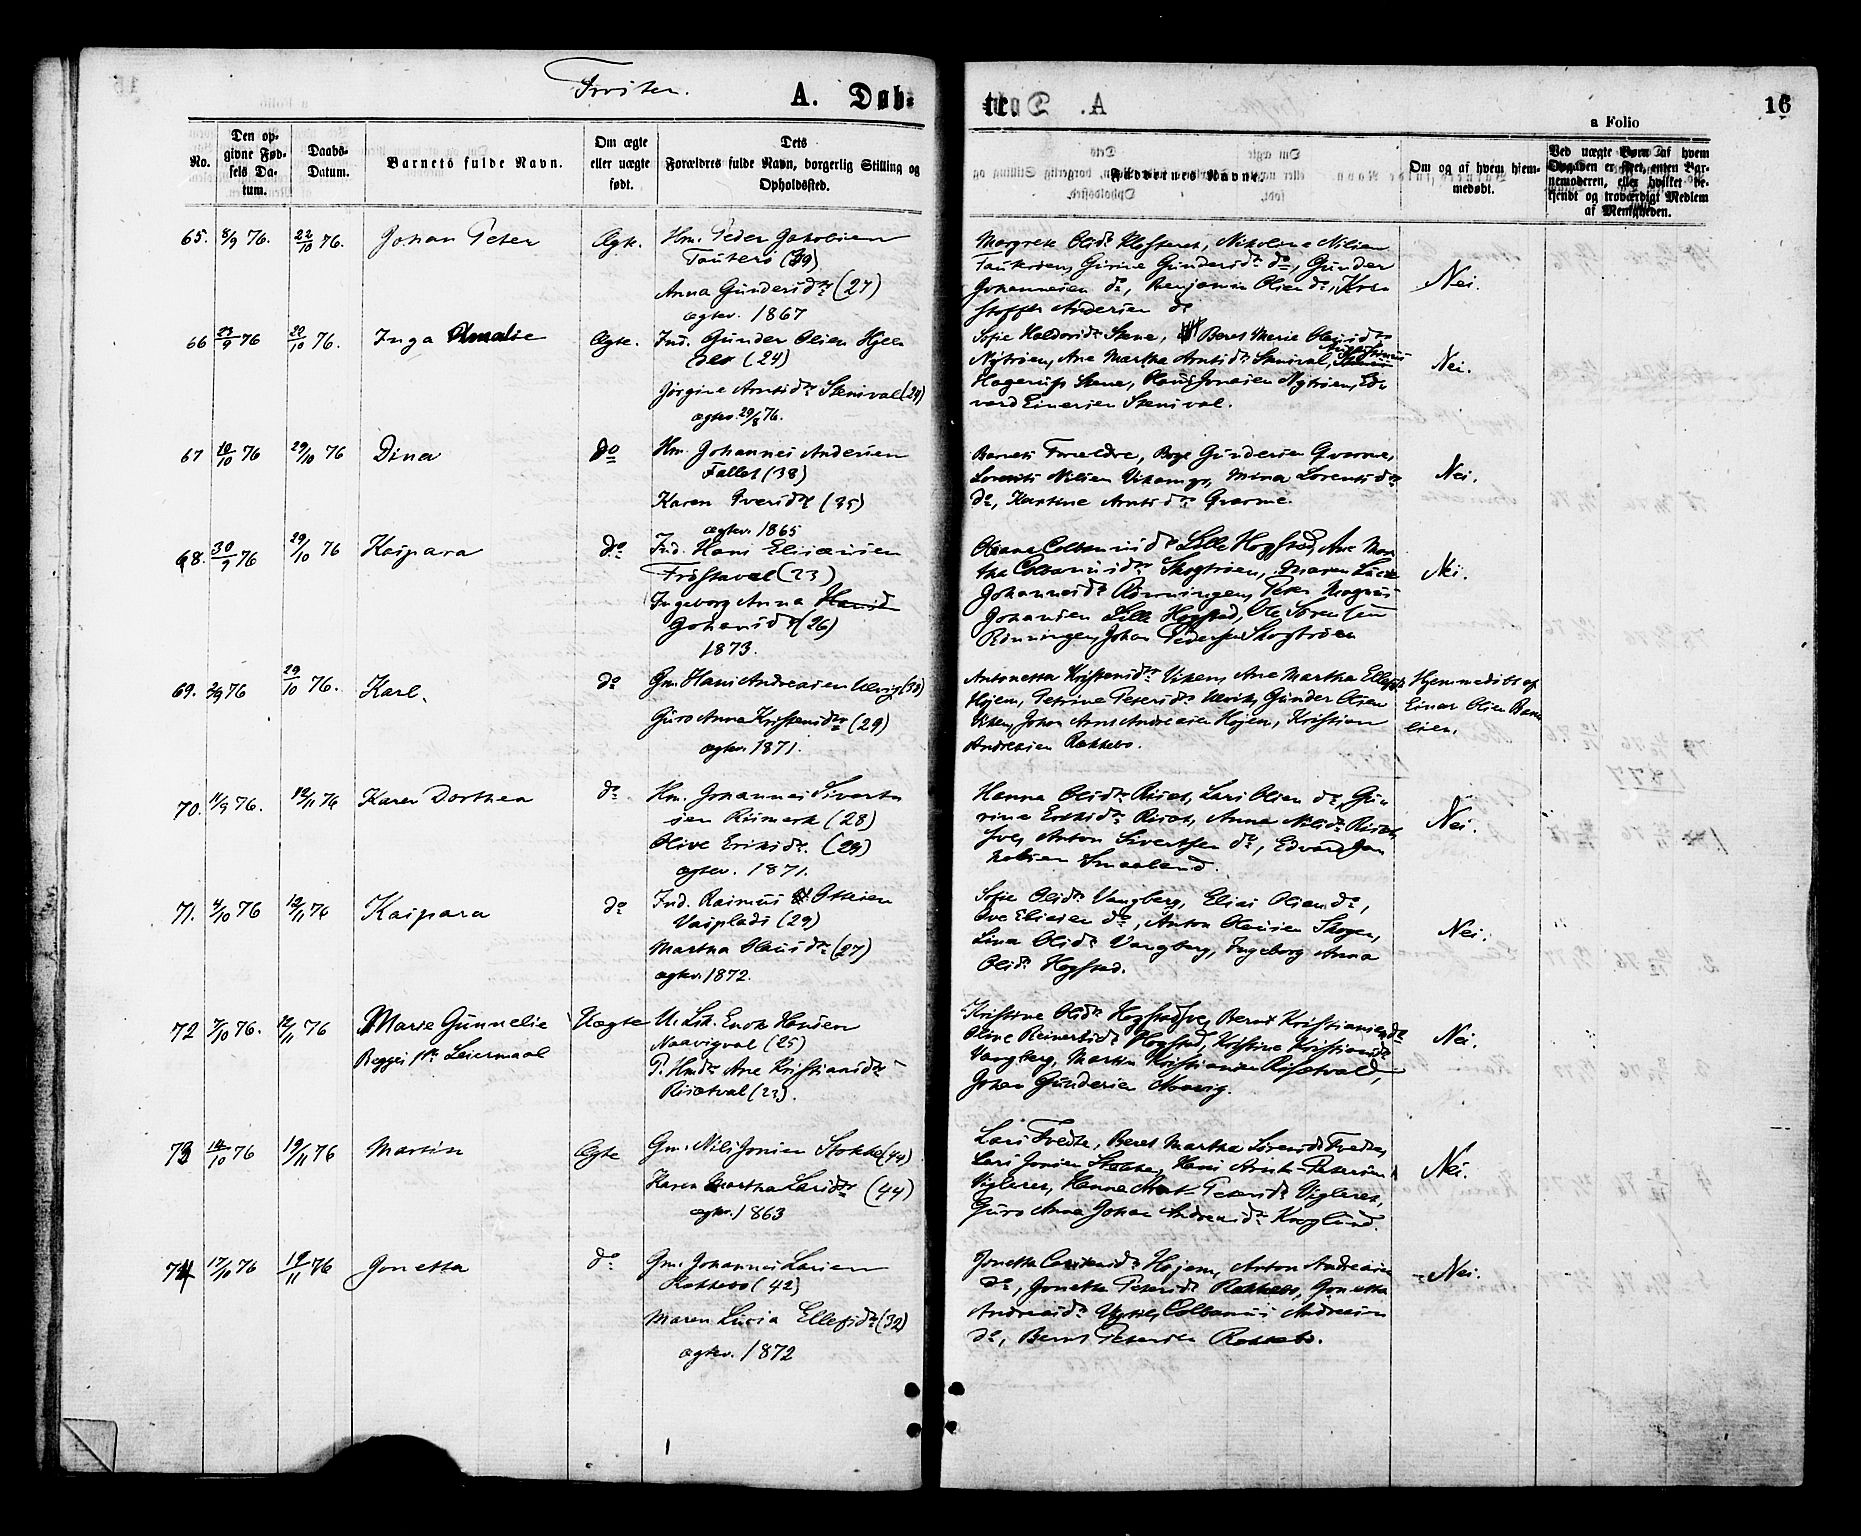 Frosten.
A. Døb-
te.
16
a Folio
No.
Den op-
givne Fød-
sels Da-
tum.
Daabs-
Datum.
Barnets fulde Navn.
Om ægte
eller uægte
født.
Dets
Forældres fulde Navn, borgerlig Stilling og
Opholdssted.
Faddernes Navne.
Om og af hvem hjem-
medøbt.
Ved uægte Børn af hvem
Opgaven er skeet, enten Bar-
nemoderen, eller hvilket be-
kjendt og troværdigt Medlem
af Menigheden.
65. 8/9 76. 22/10 76. Johan Peter Ægte. Hm. Peder Jakobsen
Tauterø (39)
Anna Gundersdr (27)
ægtev. 1867
Margrete Olsdr Klosteret, Nikoline Nilsen
Tauterøen, Gurine Gundersdr do, Gunder
Johannesen do, Benjamin Olsen do, Kri-
stoffer Andersen do
Nei.
66 23/9 76 22/10 76. Inga Amalie Ægte. Ind. Gunder Olsen Hjel-
(24)
Jørgine Arntsdr Stensval (24)
ægtev. 29/8 76.
Sofie Haldorsdr Stene, Beret Marie Olausdr
Nytrøen, Ane Martha Arntsdr Stensval,
Hagerup Stene, Olaus Jonsen Nytrøen, Ed-
vard Einersen Stensval.
Nei.
67 10/10 76 29/10 76 Dina do Hm. Johannes Andersen
Fallet (38)
Karen Iversdr (35)
ægtev. 1865
Barnets Forældre, Gundersen Qvarme,
Lorents Nilsen Vikamyr, Mina Lorentsdr
do, Arntsdr Qvarme.
Nei.
68. 30/9 76 29/10 76 Kaspara do Ind. Hans Eliasersen
Frøstaval (23)
Ingeborg Anna
Johansdr (26)
1873.
Oleana Colbanusdr Lille Hogstad, Ane Mar-
tha Colbanusdr Skogtrøen, Maren Lucie
Johannesdr Rønningen, Peter Magnus
Johansen Lille Hogstad, Ole Sørensen
Rønningen, Johan Pedersen Skogtrøen
Nei.
69. 2/9 76 29/10 76. Karl. do Gm. Hans Andreasen Ulvig (30)
Guro Anna Kristensdr (29)
ægtev. 1871.
Antonetta Kristensdr Viken, Ane Martha Ellefsdr
Hojem, Petrine Petersdr Ulvik, Gunder Olsen
Viken, Johan Arnt Andreasen Hojem, Kristian
Andreasen Rakkebo.
Hjemmedøbt af
Einar Olsen
70. 11/9 76. 12/11 76 Karen Dorthea do Hm. Johannes Sivert-
sen Rismark (28)
Olive Eriksdr. (29)
ægtev. 1871.
Hanna Olsdr Risæt, Lars Olsen do, Gu-
rine Eriksdr Risæt, Anna Nilsdr Risæt,
Anton Sivertsen do, Edvard Jo-
Smaaland.
Nei.
71. 4/10 76 12/11 76 Kaspara do Ind. Rasmus Ottesen
Vasplads (29)
Martha Olausdr (27)
ægtev. 1872.
Sofie Olsdr Vangberg, Elias Olsen do,
Ove Eliasen do, Anton Olausen Skogen,
Lina Olsdr Vangberg, Ingeborg Anna
Olsdr Hogstad.
Nei.
72 7/10 76. 12/11 76 Marie Gunnelie Uægte U. Enok Hansen
Begges 1ste Leiermaal
Naavigval (25)
P. Hmdr Ane Kristiansdr
Risætval (23).
Kristine Olsdr Hogstad, Bernt Kristiansen do
Oline Reinertsdr Hogstad, Kristine Kristiansdr
Vangberg, Martin Kristiansen Risætvald,
Johan Gundersen Naavig.
Nei.
73 14/10 76 19/11 76 Martin Ægte Gm. Nils Jonsen Stokke (44)
Karen Martha Larsdr (44)
ægtev. 1863
Lars Tvedte, Beret Martha Sørensdr Tvedten,
Lars Jonsen Stokke, Hans Arnt Petersen
Viglerer, Hanna Petersdr Vigleren,
Guro Anna Johan Andreasdr Kroglund.
Nei.
74 17/10 76 19/11 76 Jonetta do Gm. Johannes Larsen
Rakkebo (42)
Maren Lucia Ellefsdr (32)
ægtev. 1872
Jonetta Hojem, Anton Andreasen
do, Jonetta Petersdr Rakkebo, Jonetta
Andreasdr Colbanus Andreasen
do, Bernt Petersen Rakkebo.
Nei.